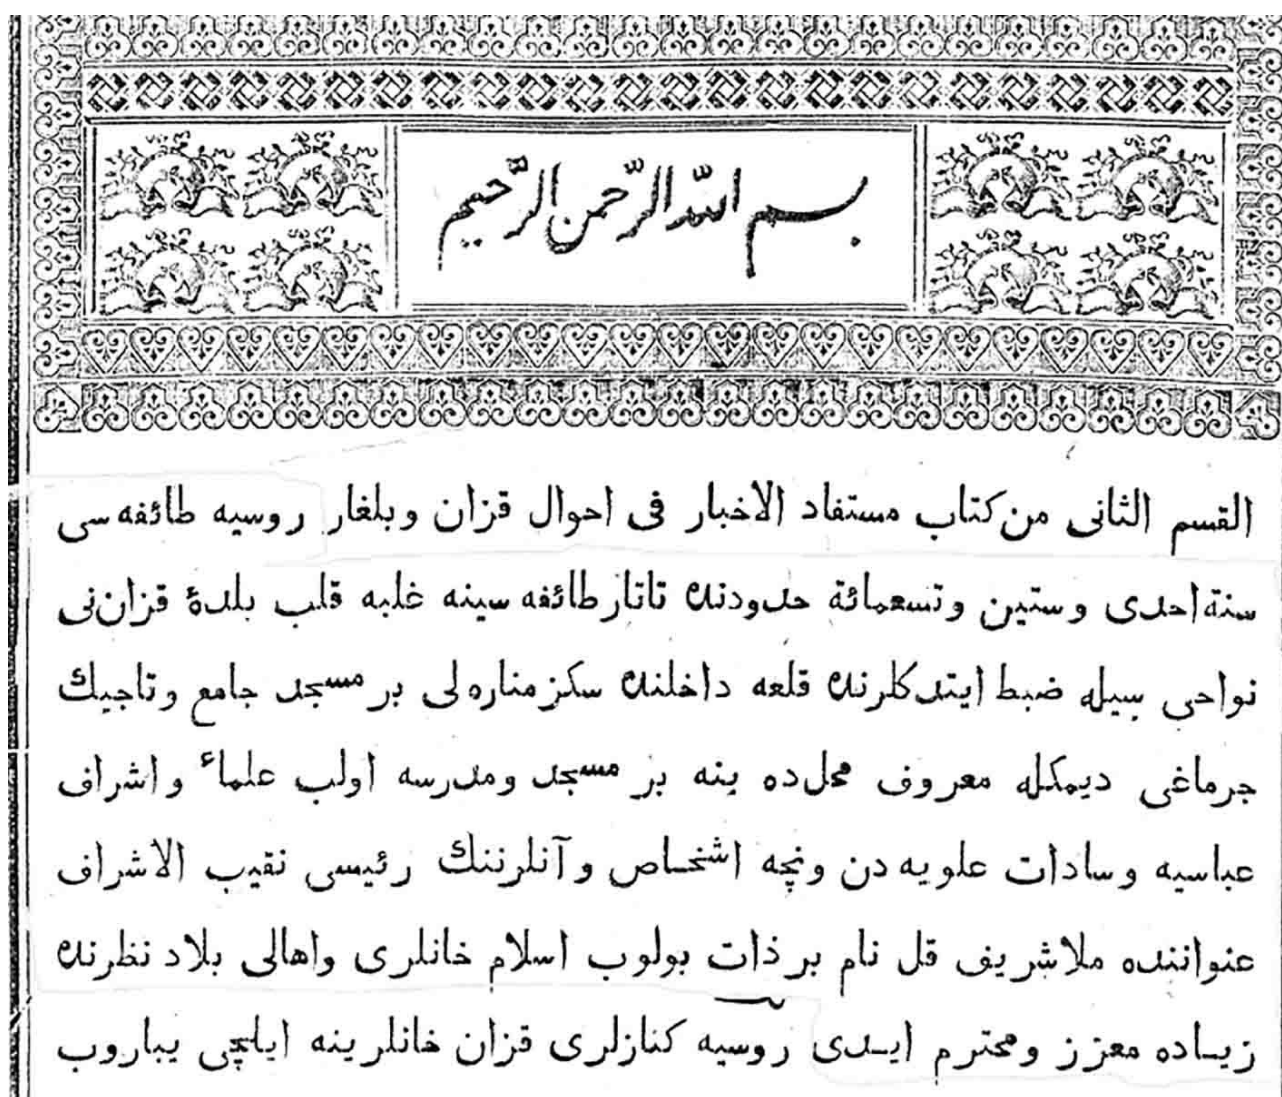 بسم الله الرّحمن الرّحيم
القسم الثانى من كتاب مستفاد الاخبار فى احوال قزان وبلغار روسيه طائفه سى
سنة احدى وستين وتسعمائة حدودنده تاتار طائفه سينه غلبه قلب بلدۀ قزان نى
نواحى سيله ضبط ايتدكلرنده قلعه داخلنده سكز مناره لى بر مسجد جامع وتاجيك
جرماغى ديمكله معروف محل ده ينه بر مسجد ومدرسه اولب علماء واشراف
عباسيه وسادات علويه دن ونچه اشخاص وآنلرننك رئيسى نقيب الاشراف
عنواننده ملاشريف قل نام بر ذات بولوب اسلام خانلرى واهالى بلاد نظرنده
زياده معزز ومحترم ايدى روسيه كنازلرى قزان خانلرينه ايلچى يباروب